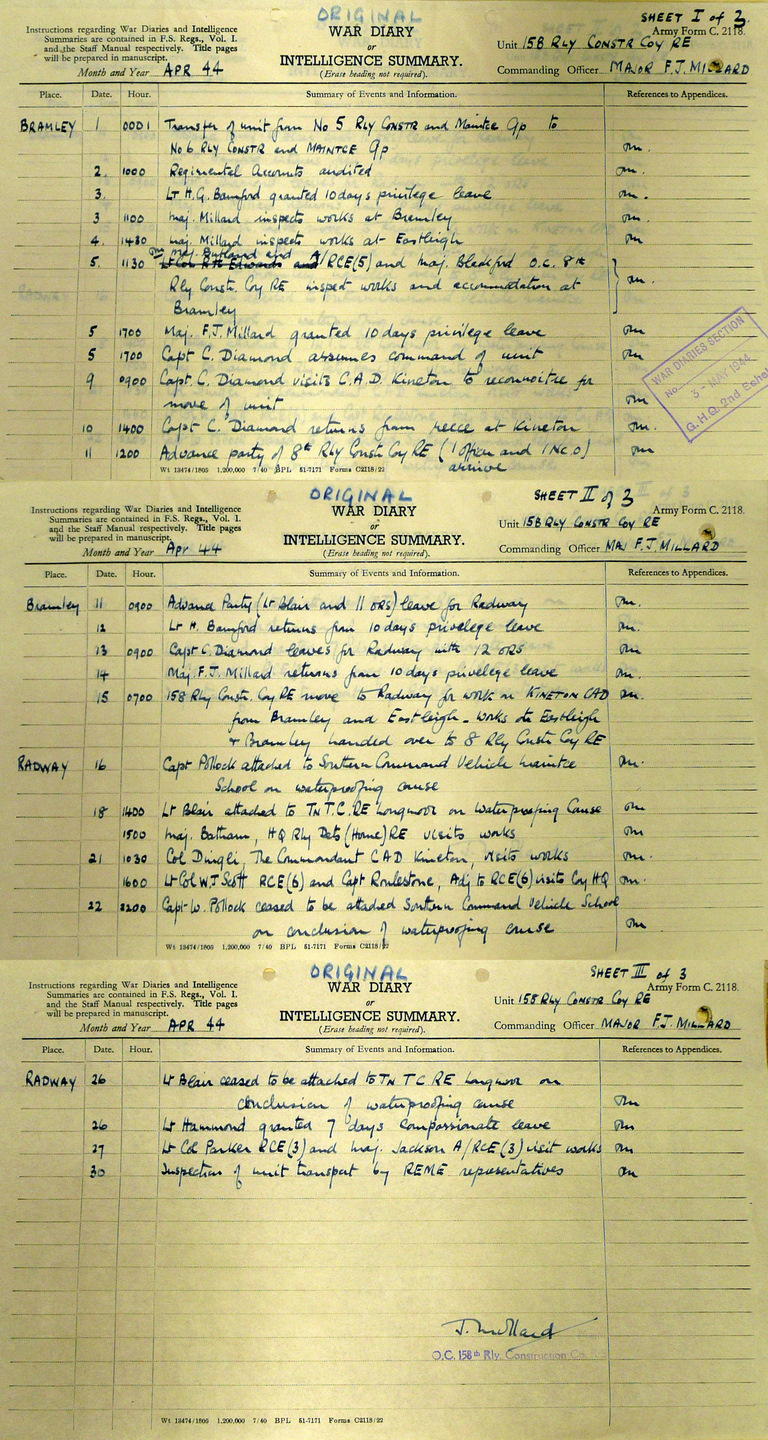 ORIGINAL
SHEET I of 3.
Instructions regarding War Diaries and Intelligence
Summaries are contained in F.S. Regs., Vol. I.
and the Staff Manual respectively. Title pages
will be prepared in manuscript.
Month and Year APR 44
WAR DIARY
or
INTELLIGENCE SUMMARY.
(Erase heading not required).
Army Form C. 2118.
Unit 158 RLY CONSTR COY RE
Commanding Officer MAJOR F.J. MILLARD
Place. Date. Hour. Summary of Events and Information. References to Appendices.
BRAMLEY 1 0001 Transfer of unit from No 5 RLY CONSTR and Maintce Gp to
No 6 RLY CONSTR and MAINTCE Gp
2. 1000 Regimental Accounts audited
3. Lt H.G. Bamford granted 10 days privilege leave
3 1100 Maj. Millard inspects works at Bramley
4. 1430 Maj. Millard inspects works at Eastleigh
5. 1130 Maj. Butland and A/RCE(5) and Maj. Bleckford O.C. 8th
Rly Constr. Coy RE inspect works and accommodation at
Bramley
5 1700 Maj. F.J. Millard granted 10 days privilege leave
5 1700 Capt C. Diamond assumes command of unit
9 0900 Capt. C. Diamond visits C.A.D. Kineton to reconnoitre for
move of unit
10 1400 Capt C. Diamond returns from recce at Kineton
11 1200 Advance party of 8th Rly Constr Coy RE (1 officer and 1 N.C.O)
arrive
WAR DIARIES SECTION
No.
3 - MAY 1944
G.H.Q. 2nd Echel
Wt 13474/1805 1,200,000 7/40 BPL 51-7171 Forms C2118/22
ORIGINAL
SHEET II of 3
Instructions regarding War Diaries and Intelligence
Summaries are contained in F.S. Regs., Vol. I.
and the Staff Manual respectively. Title pages
will be prepared in manuscript.
Month and Year Apr 44
WAR DIARY
or
INTELLIGENCE SUMMARY.
(Erase heading not required).
Army Form C. 2118.
Unit 158 RLY CONSTR COY RE
Commanding Officer MAJ F.J. MILLARD
Place. Date. Hour. Summary of Events and Information. References to Appendices.
Bramley 11 0900 Advance Party (Lt Blair and 11 ORS) leave for Radway
12 Lt H. Bamford returns from 10 days privelege leave
13 0900 Capt C. Diamond leaves for Radway with 12 ORS
14 Maj. F.J. Millard returns from 10 days privelege leave
15 0700 158 Rly Constr. Coy RE move to Radway for work on KINETON CAD
from Bramley and Eastleigh - works at Eastleigh
+ Bramley handed over to 8 Rly Constr Coy RE
RADWAY 16 Capt Pollock attached to Southern Command Vehicle Maintce
School on waterproofing course
18 1400 Lt Blair attached to TN T.C. RE Longmoor on Waterproofing Course
1500 Maj. Batham, HQ Rly Dets (Home) RE visits works
21 1030 Col Dingli, The Commandant CAD Kineton, visits works
1600 Lt Col W.J Scott RCE(6) and Capt Roulestone, Adj to RCE(6) visits Coy HQ
22 2200 Capt W. Pollock ceased to be attached Southern Command Vehicle School
on conclusion of waterproofing course
Wt 13474/1805 1,200,000 7/40 BPL 51-7171 Forms C2118/22
ORIGINAL
SHEET III of 3
Instructions regarding War Diaries and Intelligence
Summaries are contained in F.S. Regs., Vol. I.
and the Staff Manual respectively. Title pages
will be prepared in manuscript.
Month and Year APR 44
WAR DIARY
or
INTELLIGENCE SUMMARY.
(Erase heading not required).
Army Form C. 2118.
Unit 158 RLY CONSTR COY RE
Commanding Officer MAJOR F.J. MILLARD
Place. Date. Hour. Summary of Events and Information. References to Appendices.
RADWAY 26 Lt Blair ceased to be attached to TN TC RE Longmoor on
conclusion of waterproofing course
26 Lt Hammond granted 7 days compassionate leave
27 Lt Col Parker RCE(3) and Maj. Jackson A/RCE(3) visit works
30 Inspection of unit transport by REME representatives
J. Millard
O.C. 158th Rly. Construction Co.
Wt 13474/1805 1,200,000 7/40 BPL 51-7171 Forms C2118/22